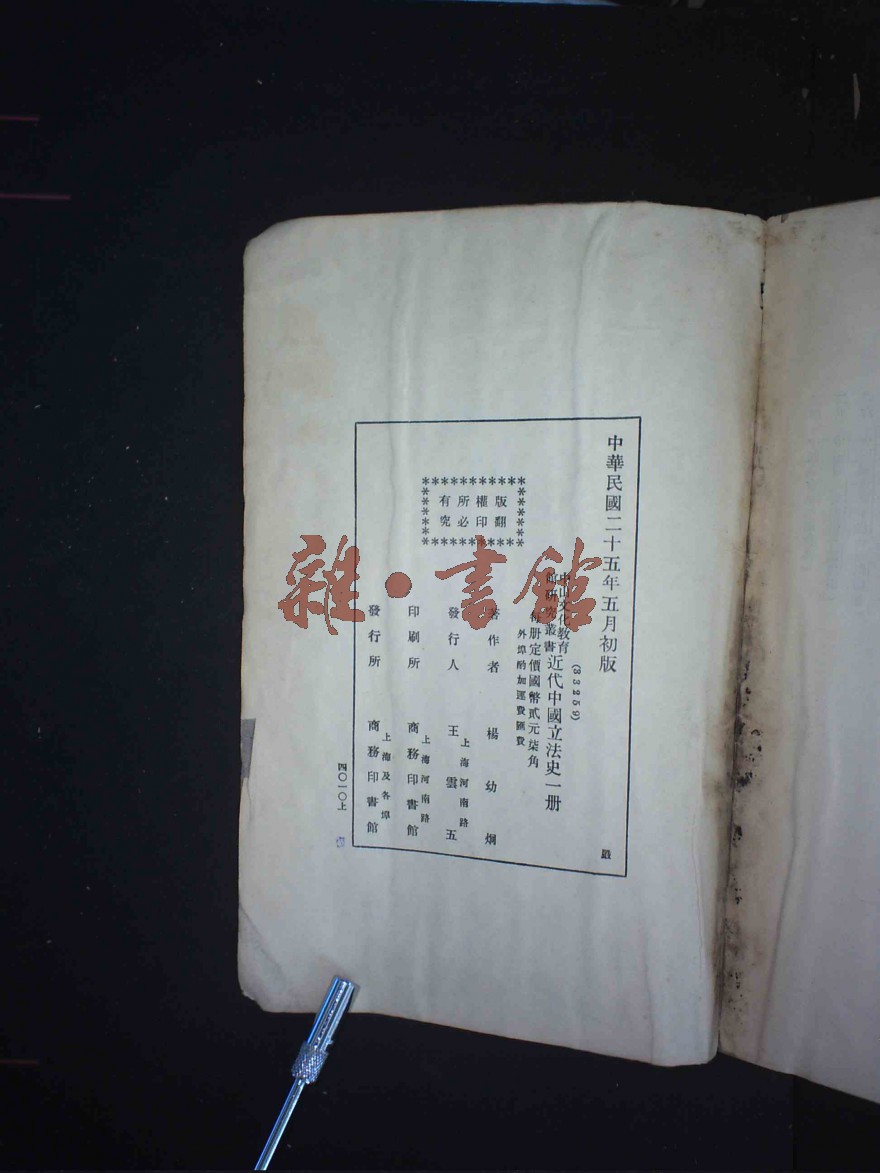 中華民國二十五年五月初版
(33259)
中山文化教育
館研究叢書
近代中國立法史一册
每册定價國幣貳元柒角
外埠酌加運費匯費
版權所有
翻印必究
著作者 楊幼炯
發行人 王雲五
上海河南路
印刷所 商務印書館
上海河南路
發行所 商務印書館
上海及各埠
四〇一〇上
雜·書館